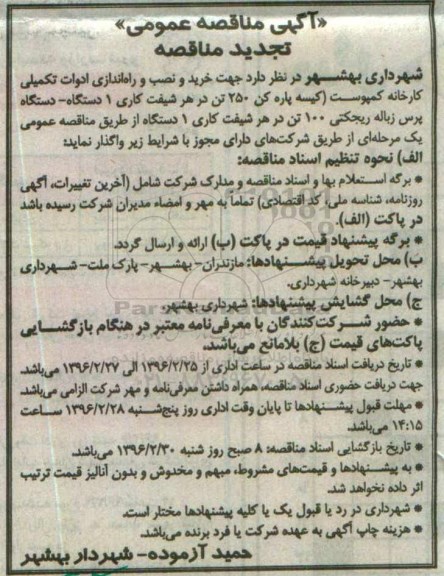 «آگهی مناقصه عمومی»
تجدید مناقصه
شهرداری بهشهر در نظر دارد جهت خرید و نصب و راه‌اندازی ادوات تکمیلی
کارخانه کمپوست (کیسه پاره کن ۲۵۰ تن در هر شیفت کاری ۱ دستگاه- دستگاه
پرس زباله ریجکتی ۱۰۰ تن در هر شیفت کاری ۱ دستگاه از طریق مناقصه عمومی
یک مرحله‌ای از طریق شرکت‌های دارای مجوز با شرایط زیر واگذار نماید:
الف) نحوه تنظیم اسناد مناقصه:
* برگه استعلام بها و اسناد مناقصه و مدارک شرکت شامل (آخرین تغییرات، آگهی
روزنامه، شناسه ملی، کد اقتصادی) تماماً به مهر و امضاء مدیران شرکت رسیده باشد
در پاکت (الف).
* برگه پیشنهاد قیمت در پاکت (ب) ارائه و ارسال گردد.
ب) محل تحویل پیشنهادها: مازندران- بهشهر- پارک ملت- شهرداری
بهشهر- دبیرخانه شهرداری.
ج) محل گشایش پیشنهادها: شهرداری بهشهر
* حضور شرکت‌کنندگان با معرفی‌نامه معتبر در هنگام بازگشایی
پاکت‌های قیمت (ج) بلامانع می‌باشد.
* تاریخ دریافت اسناد مناقصه در ساعت اداری از ۱۳۹۶/۲/۲۵ الی ۱۳۹۶/۲/۲۷ می‌باشد.
جهت دریافت حضوری اسناد مناقصه، همراه داشتن معرفی‌نامه و مهر شرکت الزامی می‌باشد.
* مهلت قبول پیشنهادها تا پایان وقت اداری روز پنج‌شنبه ۱۳۹۶/۲/۲۸ ساعت
۱۴:۱۵ می‌باشد.
* تاریخ بازگشایی اسناد مناقصه: ۸ صبح روز شنبه ۱۳۹۶/۲/۳۰ می‌باشد.
* به پیشنهادها و قیمت‌های مشروط، مبهم و مخدوش و بدون آنالیز قیمت ترتیب
اثر داده نخواهد شد.
* شهرداری در رد یا قبول یک یا کلیه پیشنهادها مختار است.
* هزینه چاپ آگهی به عهده شرکت یا فرد برنده می‌باشد.
حمید آزموده- شهردار بهشهر